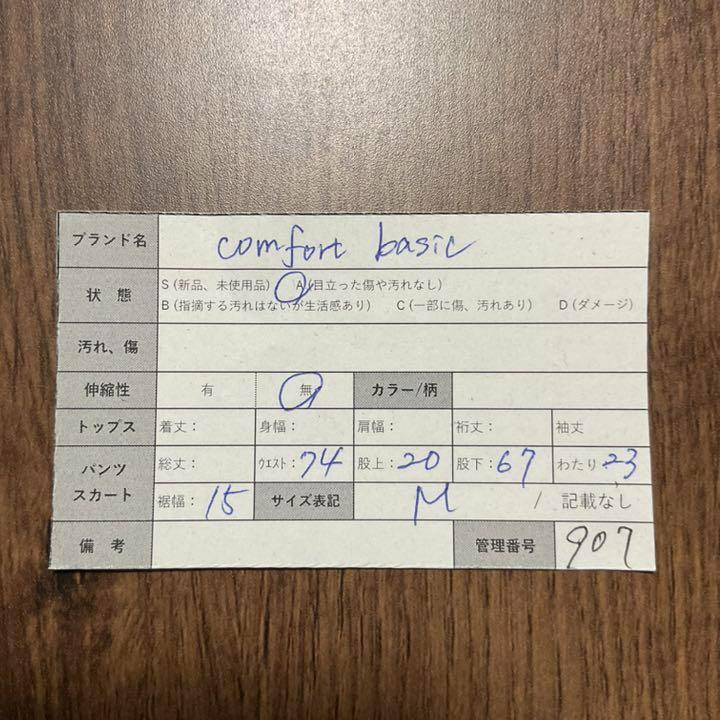 ブランド名 comfort basic
状態 S (新品、未使用品) A (目立った傷や汚れなし)
B (指摘する汚れはないが生活感あり) C (一部に傷、汚れあり) D (ダメージ)
汚れ、傷
伸縮性 有 無 カラー/柄
トップス 着丈: 身幅: 肩幅: 裄丈: 袖丈
パンツ スカート 総丈: ウエスト: 74 股上: 20 股下: 67 わたり 23
裾幅: 15 サイズ表記 M / 記載なし
備考 管理番号 907